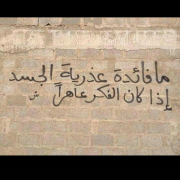 ما فائدة عذرية الجسد
إذا كان الفكر عاهراً ش